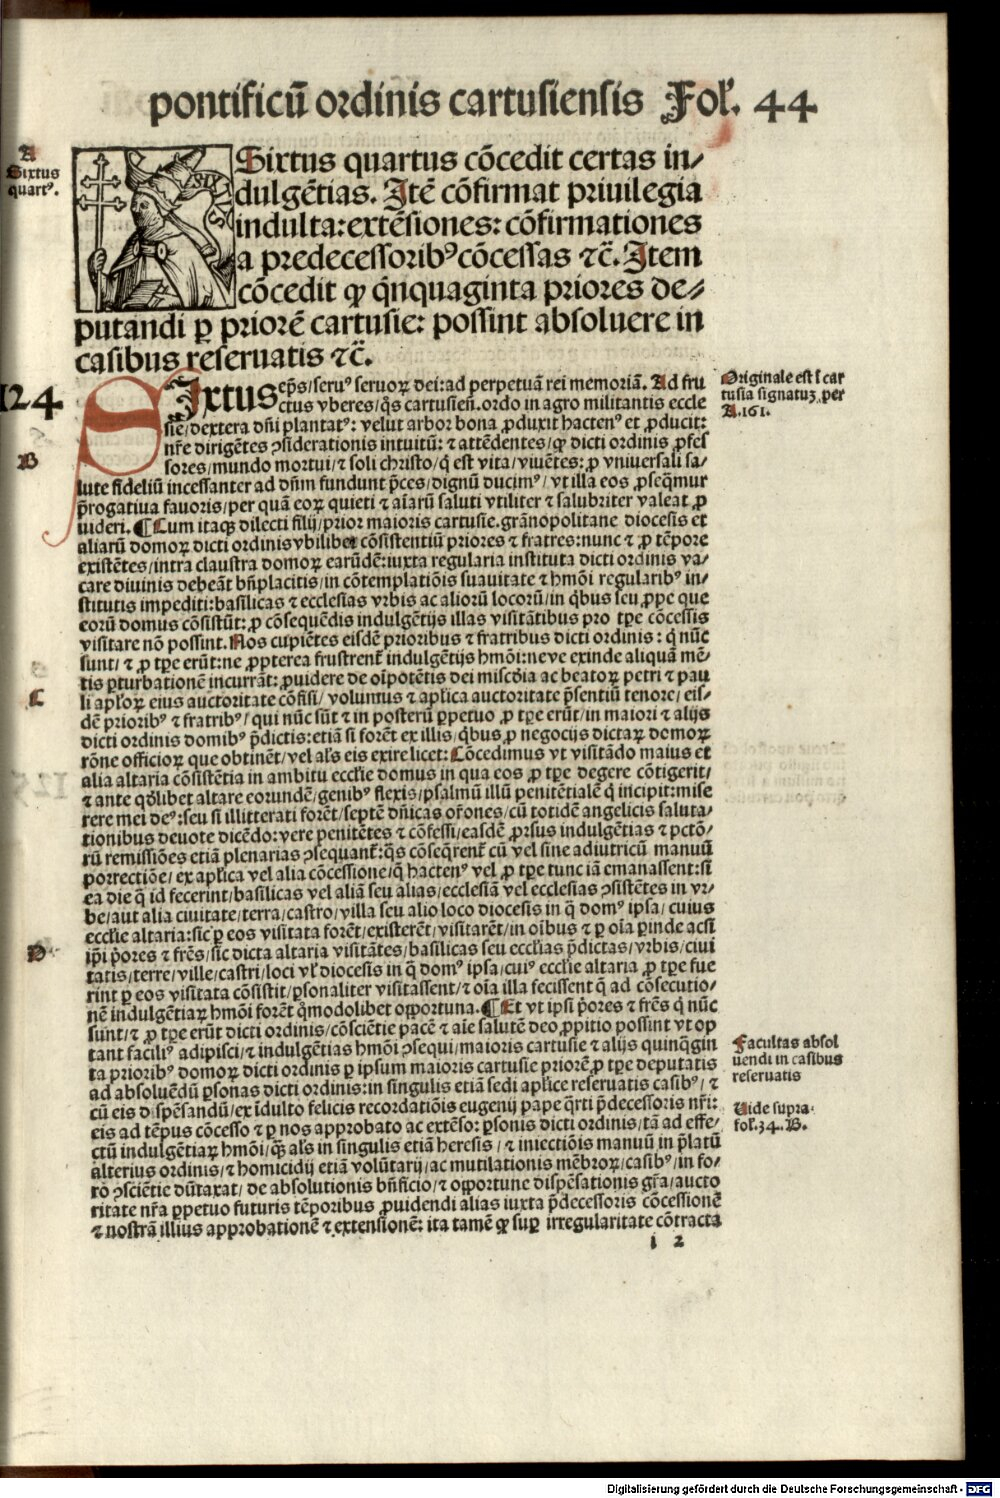 pontificū ordinis cartusiensis Fol̃. 44
A
Sixtus
quartꝰ.
Sixtus quartus cōcedit certas in/
dulgētias. Itē cōfirmat priuilegia
indulta: extēsiones: cōfirmationes
a predecessoribꝰ cōcessas ⁊c̄. Item
cōcedit ꝙ q̄nquaginta priores de/
putandi ꝑ priorē cartusie: possint absoluere in
casibus reseruatis ⁊c̄.
124
Sixtus ep̄s/seruꝰ seruoꝝ dei: ad perpetuā rei memoriā. Ad fru
ctus vberes/q̄s cartusien̄. ordo in agro militantis eccle
sie/dextera dn̄i plantatꝰ: velut arbor bona ꝓduxit hactenꝰ et ꝓducit:
nr̄e dirigētes ꝯsiderationis intuitū: ⁊ attēdentes/ꝙ dicti ordinis ꝓfes
B
sores/mundo mortui/⁊ soli christo/q̄ est vita/viuētes: ꝓ vniuersali sa/
lute fideliū incessanter ad dn̄m fundunt p̄ces/dignū ducimꝰ/vt illa eos ꝓseq̄mur
p̄rogatiua fauoris/per quā eoꝝ quieti ⁊ aīarū saluti vtiliter ⁊ salubriter valeat ꝓ
uideri. ¶ Cum itaqꝫ dilecti filij/prior maioris cartusie. grānopolitane diocesis et
aliarū domoꝝ dicti ordinis vbilibet cōsistentiū priores ⁊ fratres: nunc ⁊ ꝓ tēpore
existētes/intra claustra domoꝝ earūdē: iuxta regularia instituta dicti ordinis va/
care diuinis debeāt bn̄placitis/in cōtemplatiōis suauitate ⁊ hmōi regularibꝰ in/
stitutis impediti: basilicas ⁊ ecclesias vrbis ac aliorū locorū/in q̄bus seu ꝓpe que
eorū domus cōsistūt: ꝓ cōsequēdis indulgētijs illas visitātibus pro tp̄e cōcessis
visitare nō possint. Nos cupiētes eisdē prioribus ⁊ fratribus dicti ordinis: q̄ nūc
sunt/⁊ ꝓ tp̄e erūt: ne ꝓpterea frustrent̄ indulgētijs hmōi: neve exinde aliquā mē/
tis ꝑturbationē incurrāt: ꝓuidere de oīpotētis dei misc̄dia ac beatoꝝ petri ⁊ pau
C
li apl̄oꝝ eius auctoritate cōfisi/voluntus ⁊ apl̄ica auctoritate p̄sentiū tenore/eis/
dē prioribꝰ ⁊ fratribꝰ/qui nūc sūt ⁊ in posterū ꝑpetuo ꝓ tp̄e erūt/in maiori ⁊ alijs
dicti ordinis domibꝰ p̄dictis: etiā si forēt ex illis/q̄bus ꝓ negocijs dictaꝝ domoꝝ
rōne officioꝝ que obtinēt/vel al̄s eis exire licet: Cōcedimus vt visitādo maius et
alia altaria cōsistētia in ambitu eccl̄ie domus in qua eos ꝓ tp̄e degere cōtigerit/
⁊ ante qd̄libet altare eorundē/genibꝰ flexis/psalmū illū penitētialē q̄ incipit: mise
rere mei deꝰ: seu si illitterati forēt/septē dn̄icas or̄ones/cū totidē angelicis saluta/
tionibus deuote dicēdo: vere penitētes ⁊ cōfessi/easdē ꝓrsus indulgētias ⁊ pctō/
rū remissiōes etiā plenarias ꝯsequant̄: q̄s cōseq̄rent̄ cū vel sine adiutricū manuū
porrectiōe/ex apl̄ica vel alia cōcessione/q̄ hactenꝰ vel ꝓ tp̄e tunc iā emanassent: si
ea die q̄ id fecerint/basilicas vel aliā seu alias/ecclesiā vel ecclesias ꝯsistētes in vr/
be/aut alia ciuitate/terra/castro/villa seu alio loco diocesis in q̄ domꝰ ipsa/cuius
eccl̄ie altaria: sic ꝑ eos visitata forēt/existerēt/visitarēt/in oībus ⁊ ꝑ oīa ꝑinde acsi
D
ip̄i p̄ores ⁊ fr̄es/sic dicta altaria visitātes/basilicas seu eccl̄ias p̄dictas/vrbis/ciui
tatis/terre/ville/castri/loci vl̄ diocesis in q̄ domꝰ ipsa/cuiꝰ eccl̄ie altaria ꝓ tp̄e fue
rint ꝑ eos visitata cōsistit/ꝑsonaliter visitassent/⁊ oīa illa fecissent q̄ ad cōsecutio/
nē indulgētiaꝝ hmōi forēt q̄modolibet oꝑortuna. ¶ Et vt ipsi p̄ores ⁊ fr̄es q̄ nūc
sunt/⁊ ꝓ tp̄e erūt dicti ordinis/cōsciētie pacē ⁊ aīe salutē deo ꝓpitio possint vt op
tant faciliꝰ adipisci/⁊ indulgētias hmōi ꝯsequi/maioris cartusie ⁊ alijs quinq̄gin
ta prioribꝰ domoꝝ dicti ordinis ꝑ ipsum maioris cartusie priorē ꝓ tp̄e deputatis
ad absoluēdū ꝑsonas dicti ordinis: in singulis etiā sedi apl̄ice reseruatis casibꝰ/⁊
cū eis dispēsandū/ex īdulto felicis recordatiōis eugenij pape q̄rti p̄decessoris nr̄i:
eis ad tēpus cōcesso ⁊ ꝑ nos approbato ac extēso: ꝑsonis dicti ordinis/tā ad effe/
ctū indulgētiaꝝ hmōi/q̄ꝫ al̄s in singulis etiā heresis/⁊ iniectiōis manuū in p̄latū
alterius ordinis/⁊ homicidij etiā volūtarij/ac mutilationis mēbroꝝ/casibꝰ/in fo/
ro ꝯsciētie dūtaxat/de absolutionis bn̄ficio/⁊ oꝑortune dispēsationis gr̄a/aucto
ritate nr̄a ꝑpetuo futuris tēporibus ꝓuidendi alias iuxta p̄decessoris cōcessionē
⁊ nostrā illius approbationē ⁊ extensionē: ita tamē ꝙ suꝑ irregularitate cōtracta
i 2
Originale est ī car
tusia signatuꝫ per
A. 161.
Facultas absol
uendi in casibus
reseruatis
Uide supra.
fol̄. 34. B.
Digitalisierung gefördert durch die Deutsche Forschungsgemeinschaft - DFG